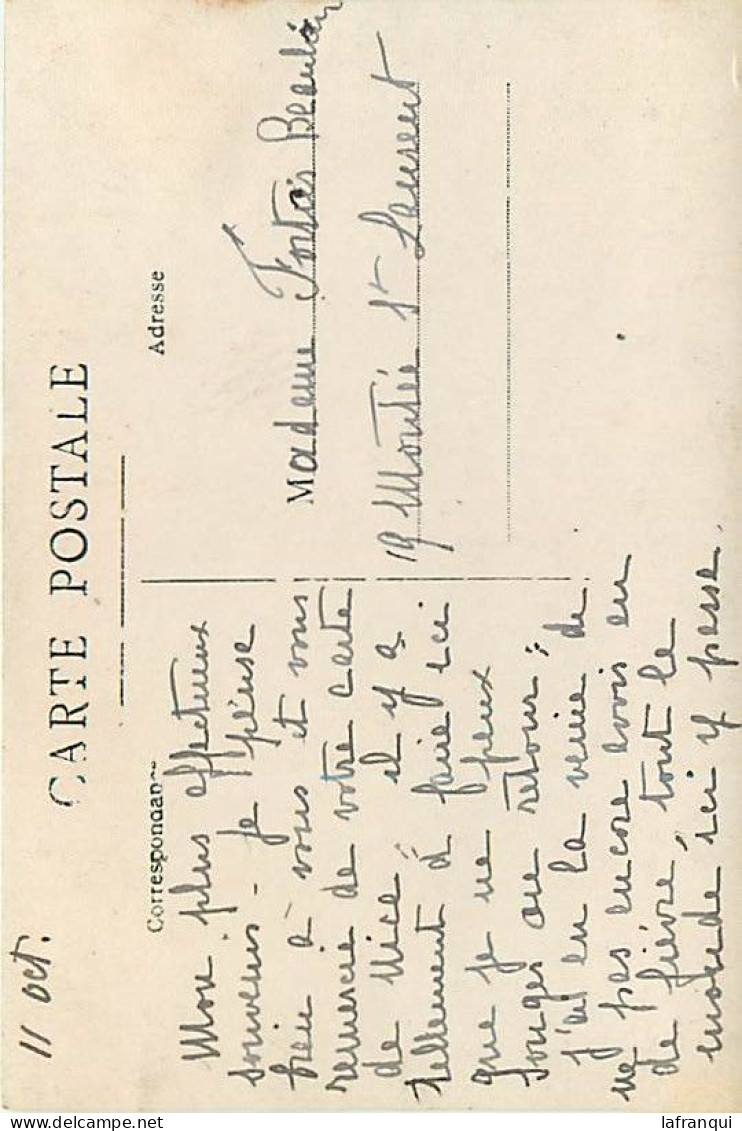 11 oct.
CARTE POSTALE
Correspondance
Mon plus affectueux
souvenir - je pense
bien à vous et vous
remercie de votre carte
de Nice, il y a
tellement à faire ici
que je ne peux
songer au retour;
j'ai eu la veine de
ne pas encore avoir eu
de fièvre, tout le
monde ici y passe.
Adresse
Madame Beaulieu
19 Montée St Laurent
lafranqui